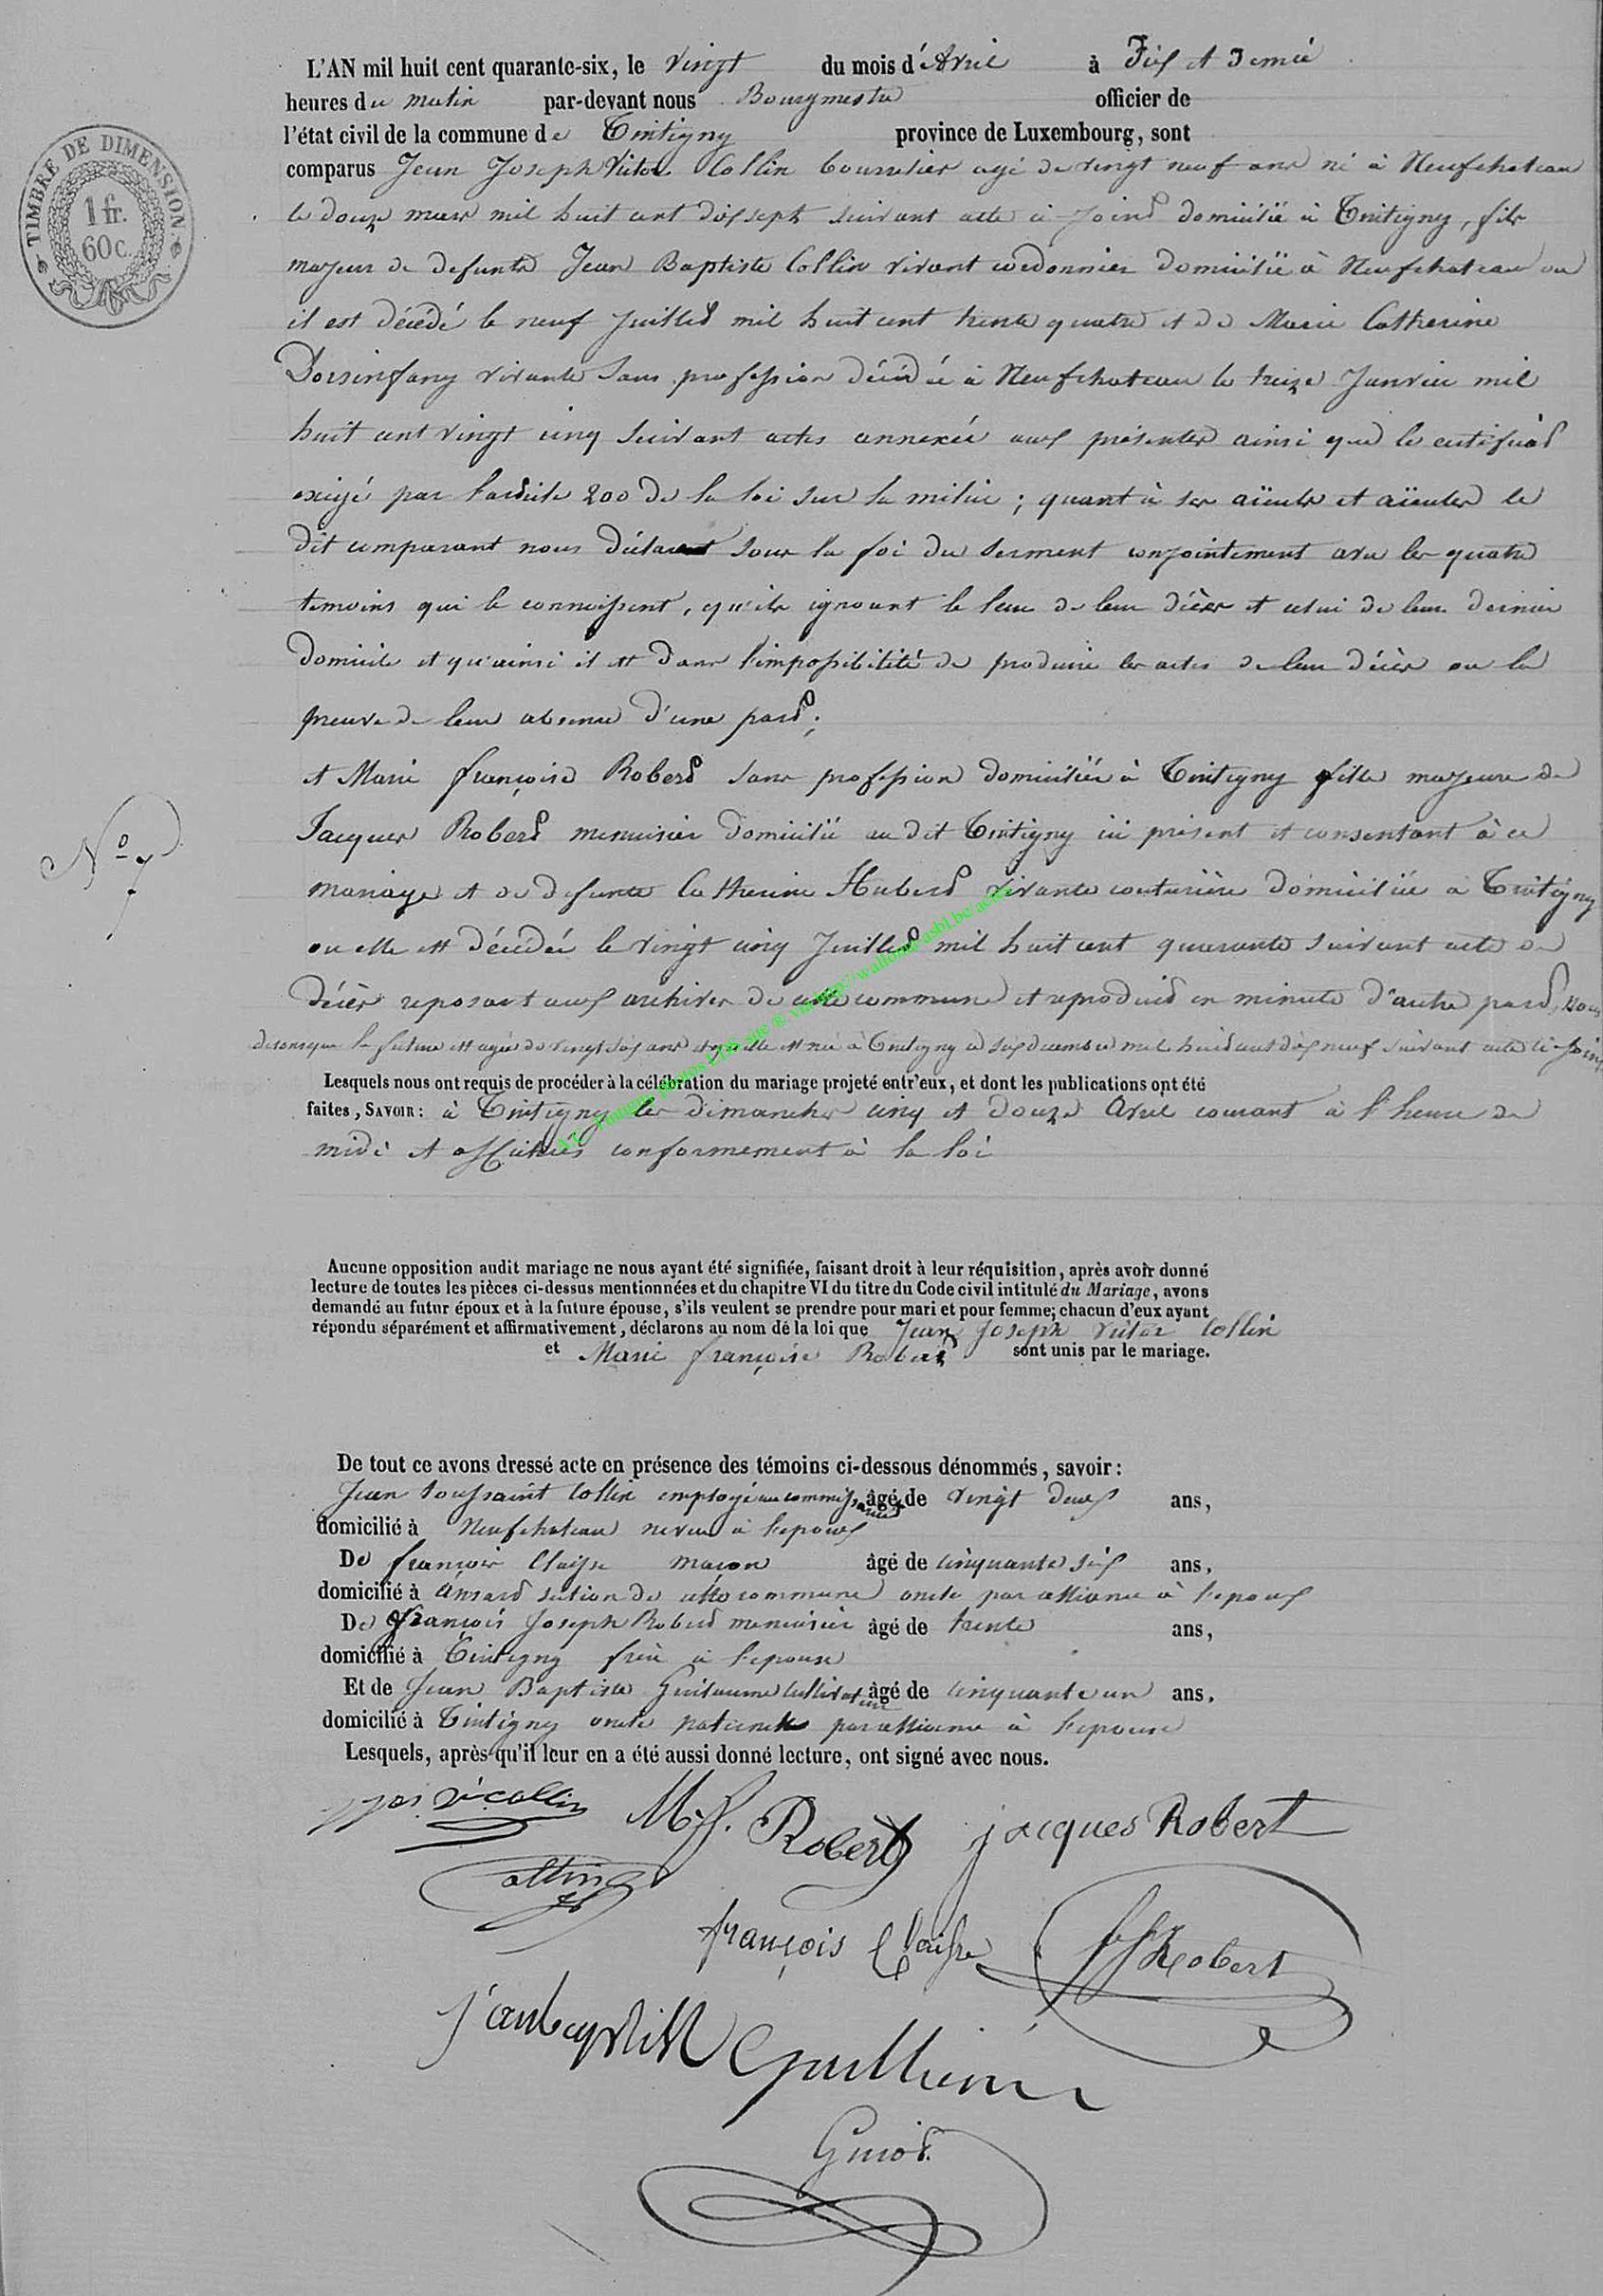 TIMBRE DE DIMENSION.
1 fr.
60 c.
L'AN mil huit cent quarante-six, le vingt du mois d'Avril à Dix et Demie
heures du matin par-devant nous Bourgmestre officier de
l'état civil de la commune de Tintigny province de Luxembourg, sont
comparus Jean Joseph Victor Collin bourrelier agé de vingt neuf ans né à Neufchateau
le douze mars mil huit cent dix sept suivant acte ci joint domicilié à Tintigny, fils
majeur de defunts Jean Baptiste Collin vivant cordonnier domicilié à Neufchateau ou
il est décédé le neuf Juillet mil huit cent trente quatre et de Marie Catherine
vivante sans profession décédée à Neufchateau le treize Janvier mil
huit cent vingt cinq suivant actes annexés aux présentes ainsi que le certificat
exigé par l'article 200 de la loi sur la milice ; quant à ses aïeuls et aïeules le
dit comparant nous déclarent sous la foi du serment conjointement avec les quatre
temoins qui le connoissent, qu'ils ignorent le lieu de leur décès et celui de leur dernier
domicile et qu'ainsi il est dans l'impossibilité de produire les actes de leur décès ou la
preuve de leur absence d'une part ;
et Marie françoise Robert sans profession domiciliée à Tintigny fille majeure de
Jacques Robert menuisier domicilié au dit Tintigny ici présent et consentant à ce
mariage et de defunte Catherine Hubert vivante couturière domiciliée à Tintigny
ou elle est décédée le vingt cinq Juillet mil huit cent quarante suivant acte de
décès reposant aux archives de cette commune et reproduit en minute d'autre part, nous
disons que la future est agée de vingt six ans et qu'elle est née à Tintigny le six decembre mil huit cent dix neuf suivant acte ci-joint
N° 7
Lesquels nous ont requis de procéder à la célébration du mariage projeté entr'eux, et dont les publications ont été
faites, SAVOIR : à Tintigny les dimanches cinq et douze Avril courant à l'heure de
midi et affichées conformement à la loi
AC Tintigny photos LDS site ® via http://wallonia-asbl.be/actes
Aucune opposition audit mariage ne nous ayant été signifiée, faisant droit à leur réquisition, après avoir donné
lecture de toutes les pièces ci-dessus mentionnées et du chapitre VI du titre du Code civil intitulé du Mariage, avons
demandé au futur époux et à la future épouse, s'ils veulent se prendre pour mari et pour femme; chacun d'eux ayant
répondu séparément et affirmativement, déclarons au nom de la loi que Jean Joseph Victor Collin
et Marie françoise Robert sont unis par le mariage.
De tout ce avons dressé acte en présence des témoins ci-dessous dénommés, savoir :
Jean Toussaint Collin employé au commissariat âgé de vingt deux ans,
domicilié à Neufchateau neveu à l'epoux
De françois Claisse maçon âgé de cinquante six ans,
domicilié à Ansart section de cette commune oncle par alliance à l'epoux
De françois Joseph Robert menuisier âgé de trente ans,
domicilié à Tintigny frère à l'epouse
Et de Jean Baptiste Guillaume cultivateur âgé de cinquante un ans,
domicilié à Tintigny oncle paternel par alliance à l'epouse
Lesquels, après qu'il leur en a été aussi donné lecture, ont signé avec nous.
Collin M. f. Robert jacques Robert
Collin
françois Claisse Robert
jeanbaptist Guillieum
Guiot